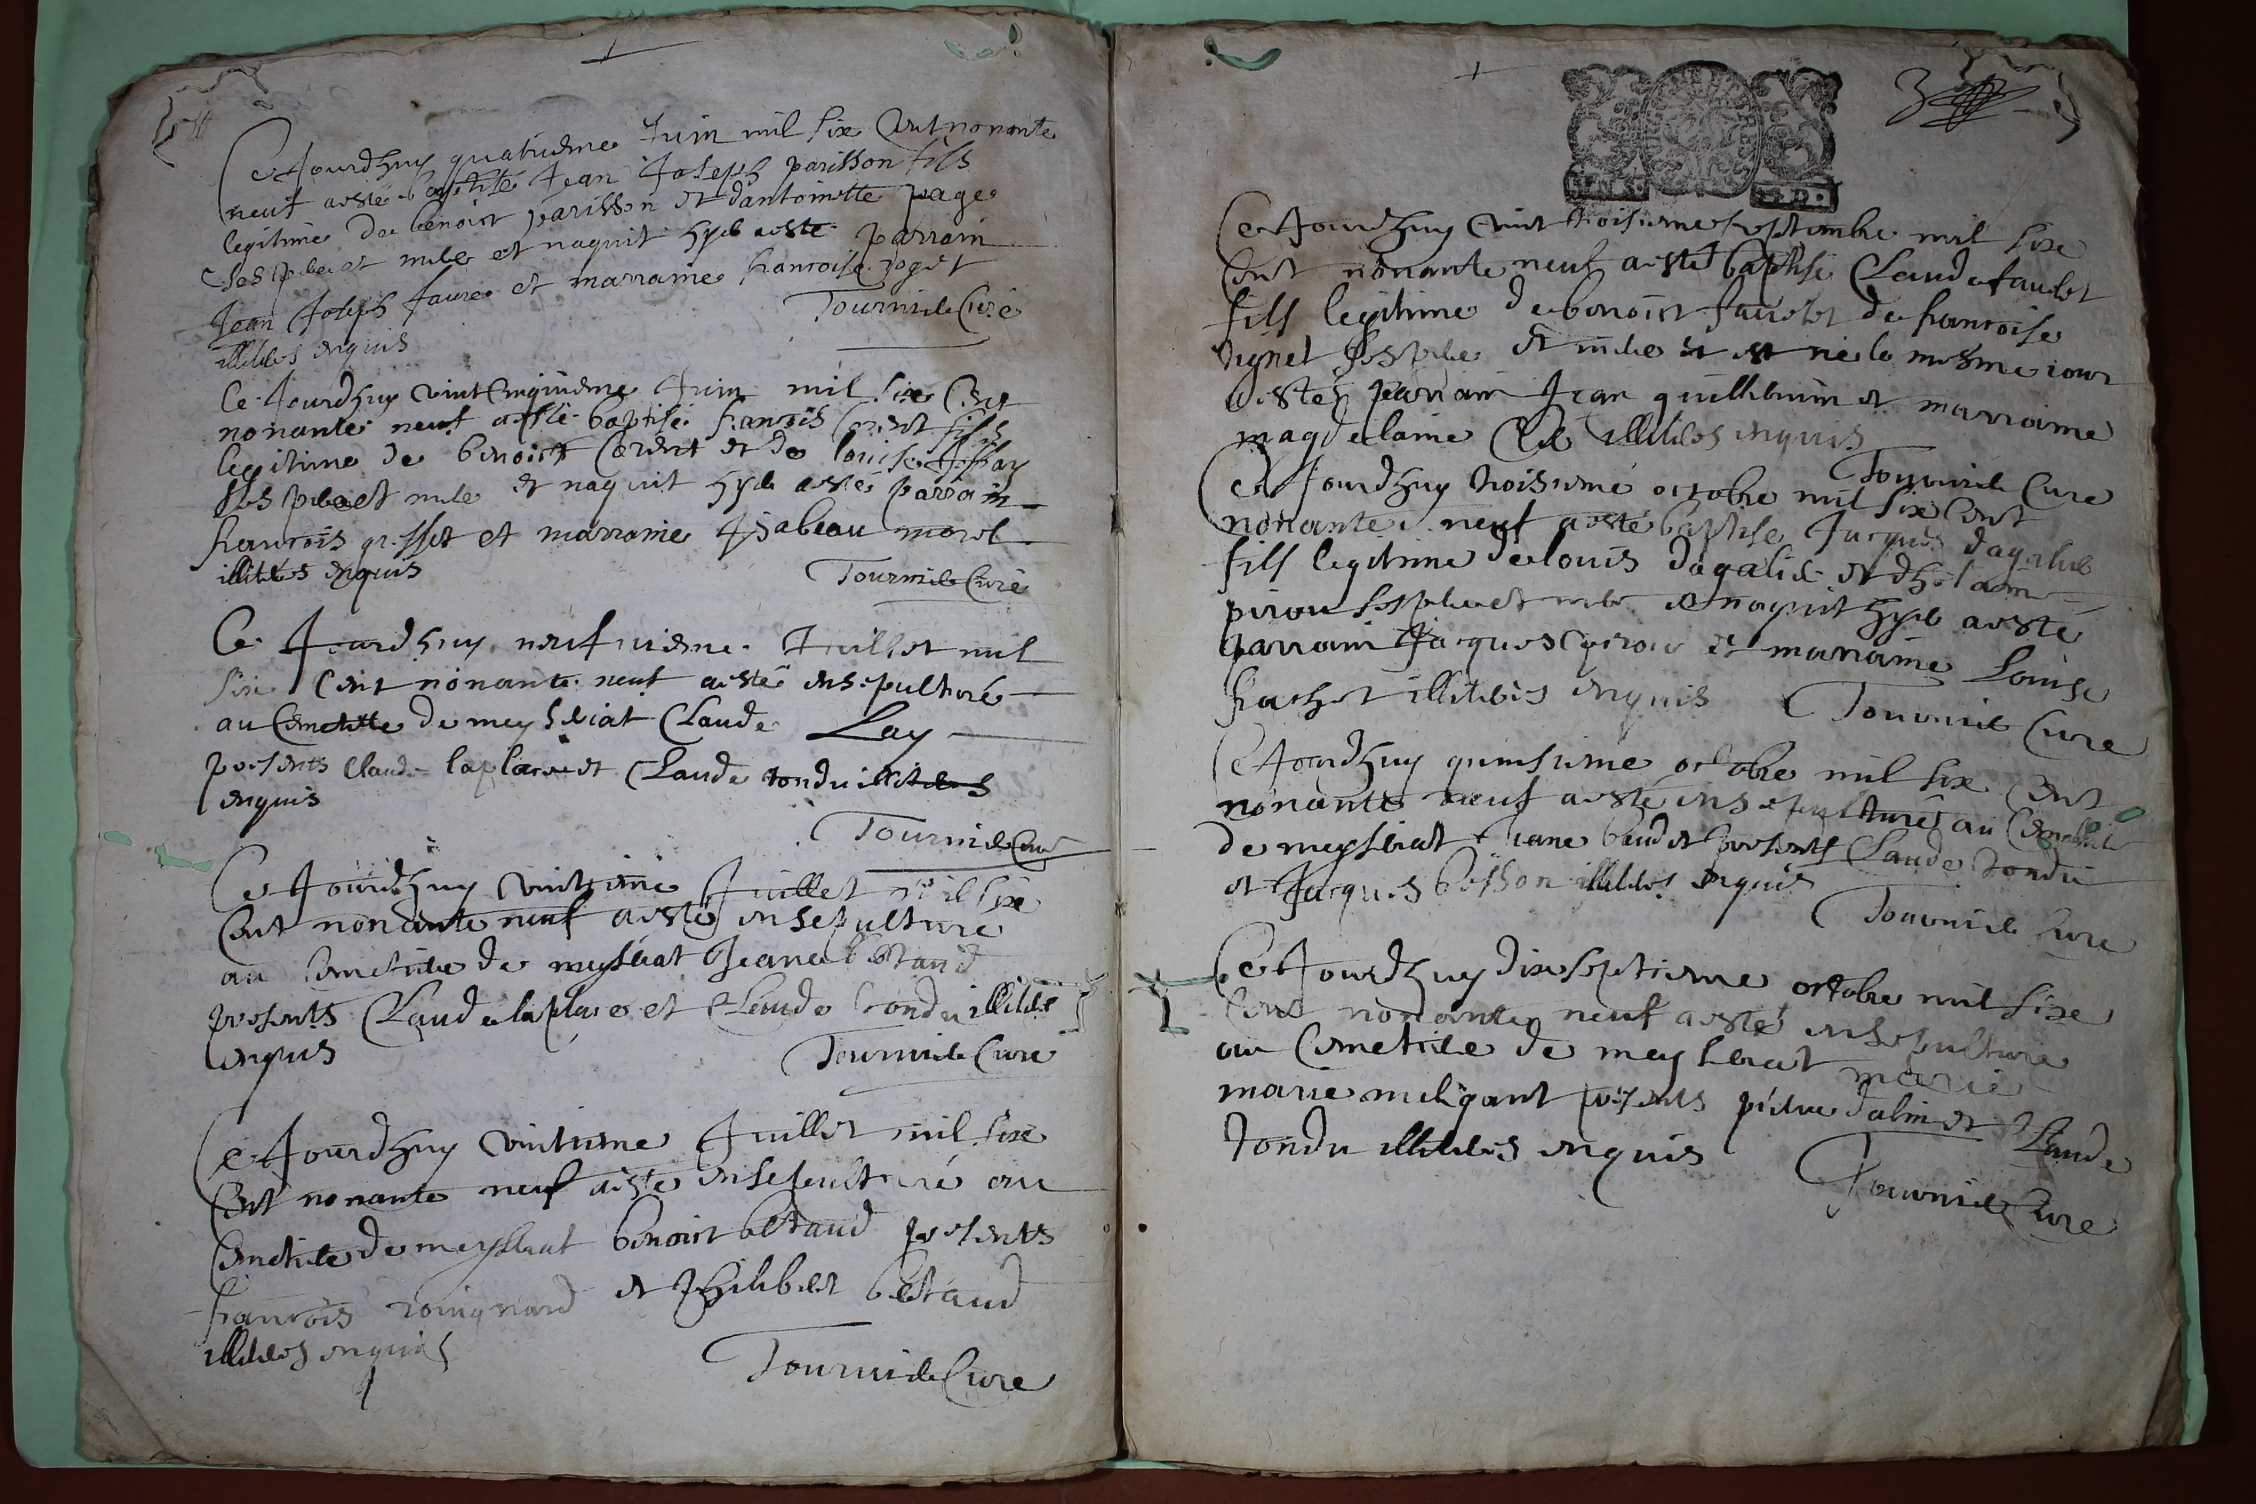 Ce Jourdhuy quatriesme Juin mil six cent nonante
neuf a esté baptisé Jean Joseph parisson fils
legitime de benoict parisson et dantoinette page
ses pere et mere et naquit hyer aesté parrain
Jean Joseph faure et marraine francoise roget
illiteres enquis
Tournier Curé
Ce Jourdhuy vint cinquiesme Juin mil six Cent
nonante neuf a esté baptisé francois fils
legitime de benoict et de louise
ses pere et mere et naquit hyer aesté parrain
francois et marraine Isabeau morel
illiteres enquis
Tournier Curé
Ce Jourdhuy neufviesme Juillet mil
six Cent nonante neuf aesté ensepulturé
au Cimetiere de meysseriat Claude Lay
presents Claude laplace et Claude tondu illiteres
enquis
Tournier Curé
Ce Jourdhuy Juillet mil six
Cent nonante neuf aesté ensepulture
au Cimetiere de meysseriat Jeane bertaud
presents Claude laplace et Claude tondu illiteres
enquis
Tournier Cure
Ce Jourdhuy vintiesme Juillet mil six
Cent nonante neuf aesté ensepulturé au
Cimetiere de meysseriat benoict bertaud presents
francois roingnard et philibert bertaud
illiteres enquis
Tournier Cure
3
Ce Jourdhuy vint troisieme septembre mil six
Cent nonante neuf aesté baptisé Claude faulet
fils legitime de benoict faulet de francoise
vignet ses pere et mere et est né le mesme iour
aesté parrain Jean guillermin et marraine
magdelaine illiteres enquis
Tournier Cure
Ce Jourdhuy troisieme octobre mil six Cent
nonante neuf aesté baptisé Jacques dagalier
fils legitime de louis dagalier et
pirou ses pere et mere et naquit hyer aesté
parrain Jacques pirou et marraine Louise
frachet illiteres enquis
Tournier Cure
Ce Jourdhuy quinsieme octobre mil six Cent
nonante neuf aesté ensepulturé au Cimetiere
de meysseriat baudet presents Claude tondu
et Jacques besson illiteres enquis
Tournier Cure
Ce Jourdhuy dixseptieme octobre mil six
Cent nonante neuf aesté ensepulture
au Cimetiere de meysseriat marie
marie presents pierre dalin et Claude
tondu illiteres enquis
Tournier Cure